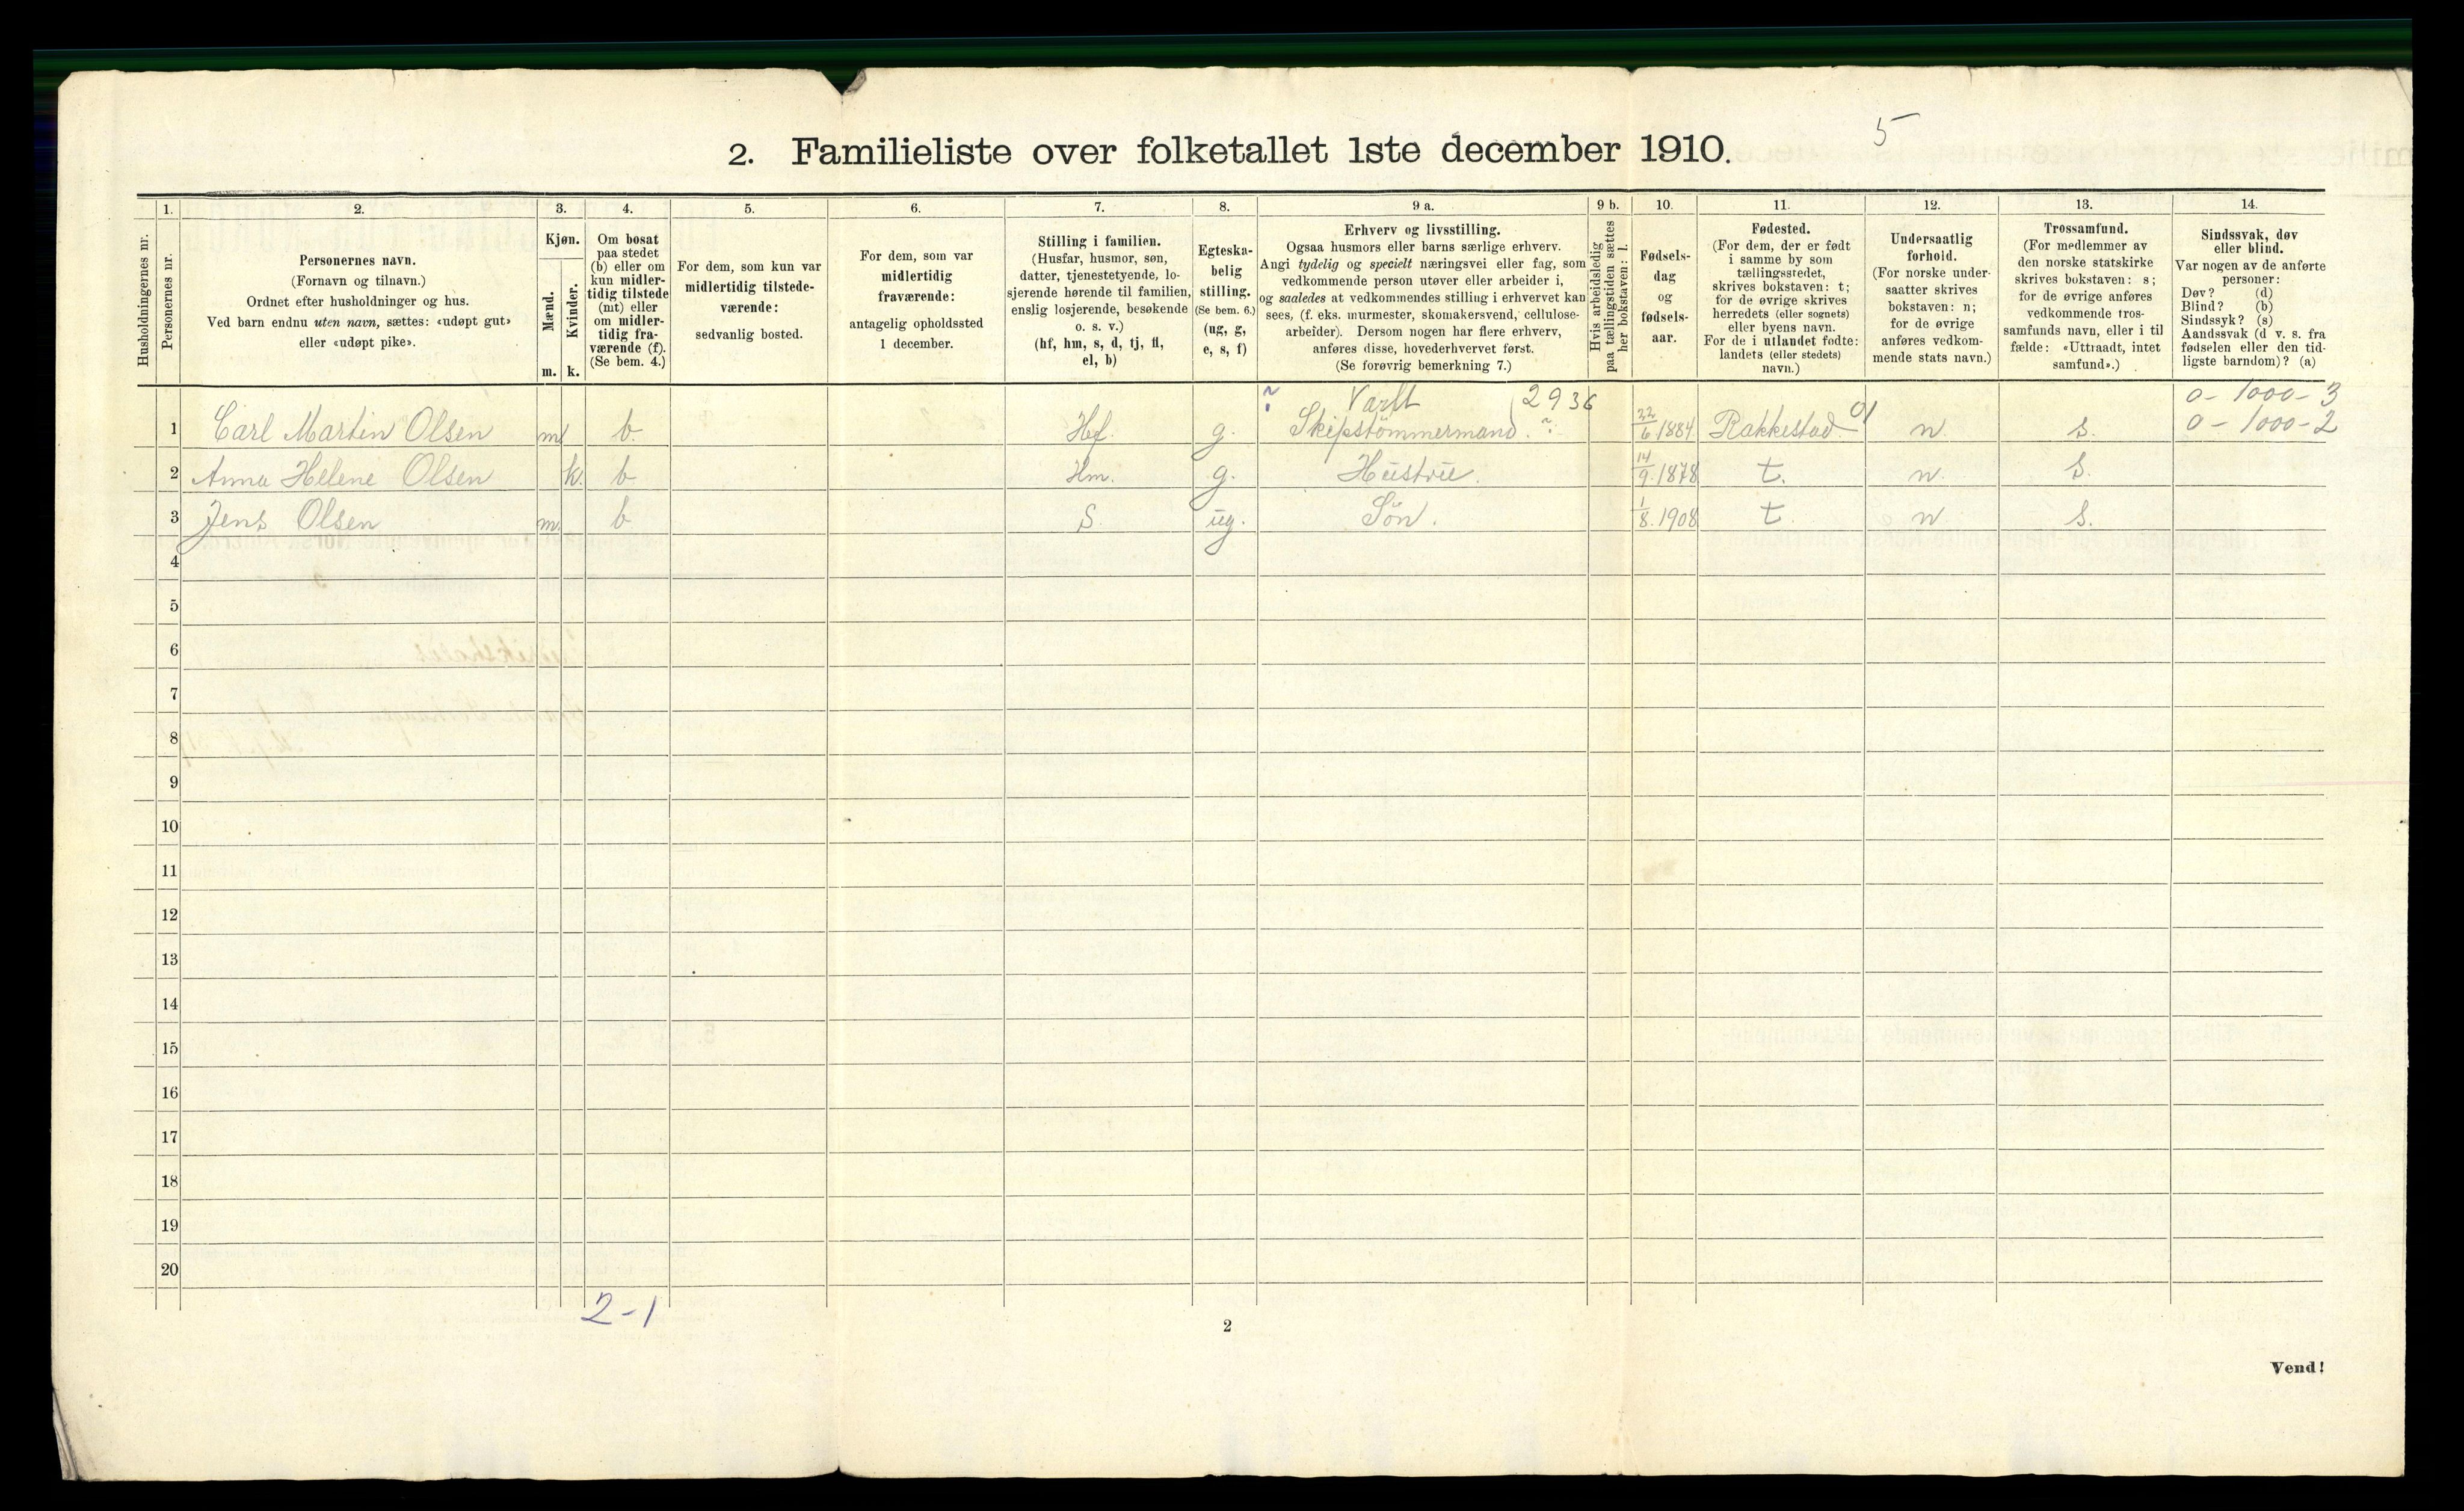 5
2. Familieliste over folketallet 1ste december 1910.
Husholdningernes nr.
1.
Personernes nr.
2.
Personernes navn.
(Fornavn og tilnavn.)
Ordnet efter husholdninger og hus.
Ved barn endnu uten navn, sættes: «udøpt gut»
eller «udøpt pike».
3.
Kjøn.
Mænd.
Kvinder.
m. k.
4.
Om bosat
paa stedet
(b) eller om
kun midler-
tidig tilstede
(mt) eller
om midler-
tidig fra-
værende (f).
(Se bem. 4.)
5.
For dem, som kun var
midlertidig tilstede-
værende:
sedvanlig bosted.
6.
For dem, som var
midlertidig
fraværende:
antagelig opholdssted
1 december.
7.
Stilling i familien.
(Husfar, husmor, søn,
datter, tjenestetyende, lo-
sjerende hørende til familien,
enslig losjerende, besøkende
o. s. v.)
(hf, hm, s, d, tj, fl,
el, b)
8.
Egteska-
belig
stilling.
(Se bem. 6.)
(ug, g,
e, s, f)
9 a.
Erhverv og livsstilling.
Ogsaa husmors eller barns særlige erhverv.
Angi tydelig og specielt næringsvei eller fag, som
vedkommende person utøver eller arbeider i,
og saaledes at vedkommendes stilling i erhvervet kan
sees, (f. eks. murmester, skomakersvend, cellulose-
arbeider). Dersom nogen har flere erhverv,
anføres disse, hovederhvervet først.
(Se forøvrig bemerkning 7.)
9 b.
Hvis arbeidsledig
paa tællingstiden sættes
her bokstaven: l.
10.
Fødsels-
dag
og
fødsels-
aar.
11.
Fødested.
(For dem, der er født
i samme by som
tællingsstedet,
skrives bokstaven: t;
for de øvrige skrives
herredets (eller sognets)
eller byens navn.
For de i utlandet fødte:
landets (eller stedets)
navn.)
12.
Undersaatlig
forhold.
(For norske under-
saatter skrives
bokstaven: n;
for de øvrige
anføres vedkom-
mende stats navn.)
13.
Trossamfund.
(For medlemmer av
den norske statskirke
skrives bokstaven: s;
for de øvrige anføres
vedkommende tros-
samfunds navn, eller i til-
fælde: «Uttraadt, intet
samfund».)
14.
Sindssvak, døv
eller blind.
Var nogen av de anførte
personer:
Døv? (d)
Blind? (b)
Sindssyk? (s)
Aandssvak (d v. s. fra
fødselen eller den tid-
ligste barndom)? (a)
2936 0-1000-3
1 Carl Martin Olsen m b. Hf. g. Skipstømmermand. 22/6 1884 Rakkestad. 01 n. s. 0-1000-2
2 Anna Helene Olsen k. b Hm. g. Hustru. 14/9. 1878 t. n. s.
3 Jens Olsen m. b S. ug. Søn. 1/8. 1908 t. n s.
4
5
6
7
8
9
10
11
12
13
14
15
16
17
18
19
20
2-1
2
Vend!